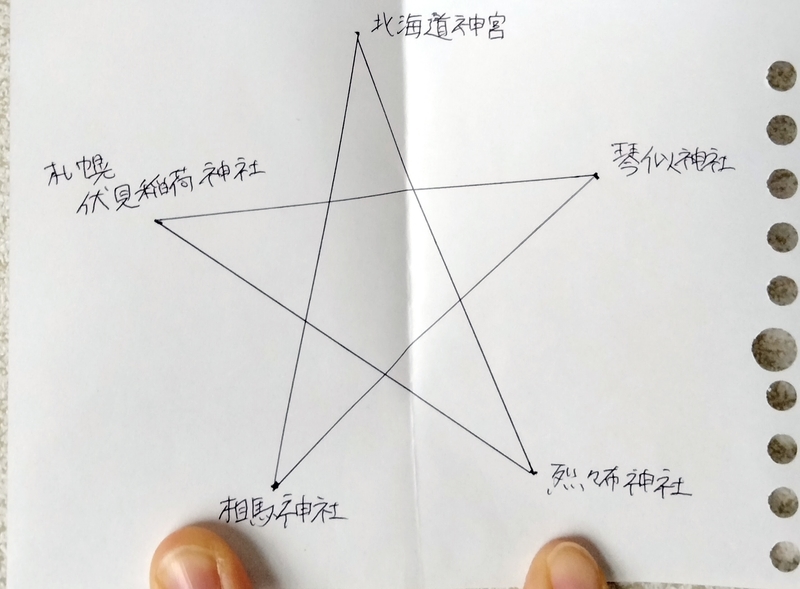 北海道神宮
琴似神社
札幌
伏見稲荷神社
相馬神社
烈々布神社